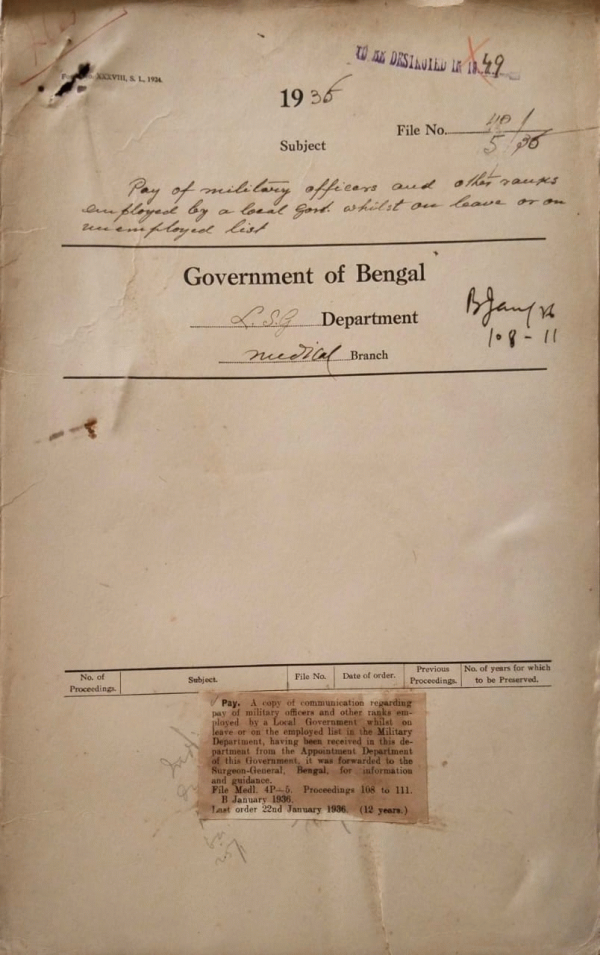 TO BE DESTROYED IN 1949
XXXVIII, S. I., 1924.
1936
File No. 4P/1
5/36
Subject
Pay of military officers and other ranks
employed by a local Govt. whilst on leave or on
unemployed list
Government of Bengal
L.S.G Department
Medical Branch
B Jany 36
108-11
No. of Proceedings. Subject. File No. Date of order. Previous Proceedings. No. of years for which to be Preserved.
Pay. A copy of communication regarding
pay of military officers and other ranks em-
ployed by a Local Government whilst on
leave or on the employed list in the Military
Department, having been received in this de-
partment from the Appointment Department
of this Government, it was forwarded to the
Surgeon-General, Bengal, for information
and guidance.
File Medl. 4P—5. Proceedings 108 to 111.
B January 1936.
Last order 22nd January 1936. (12 years.)